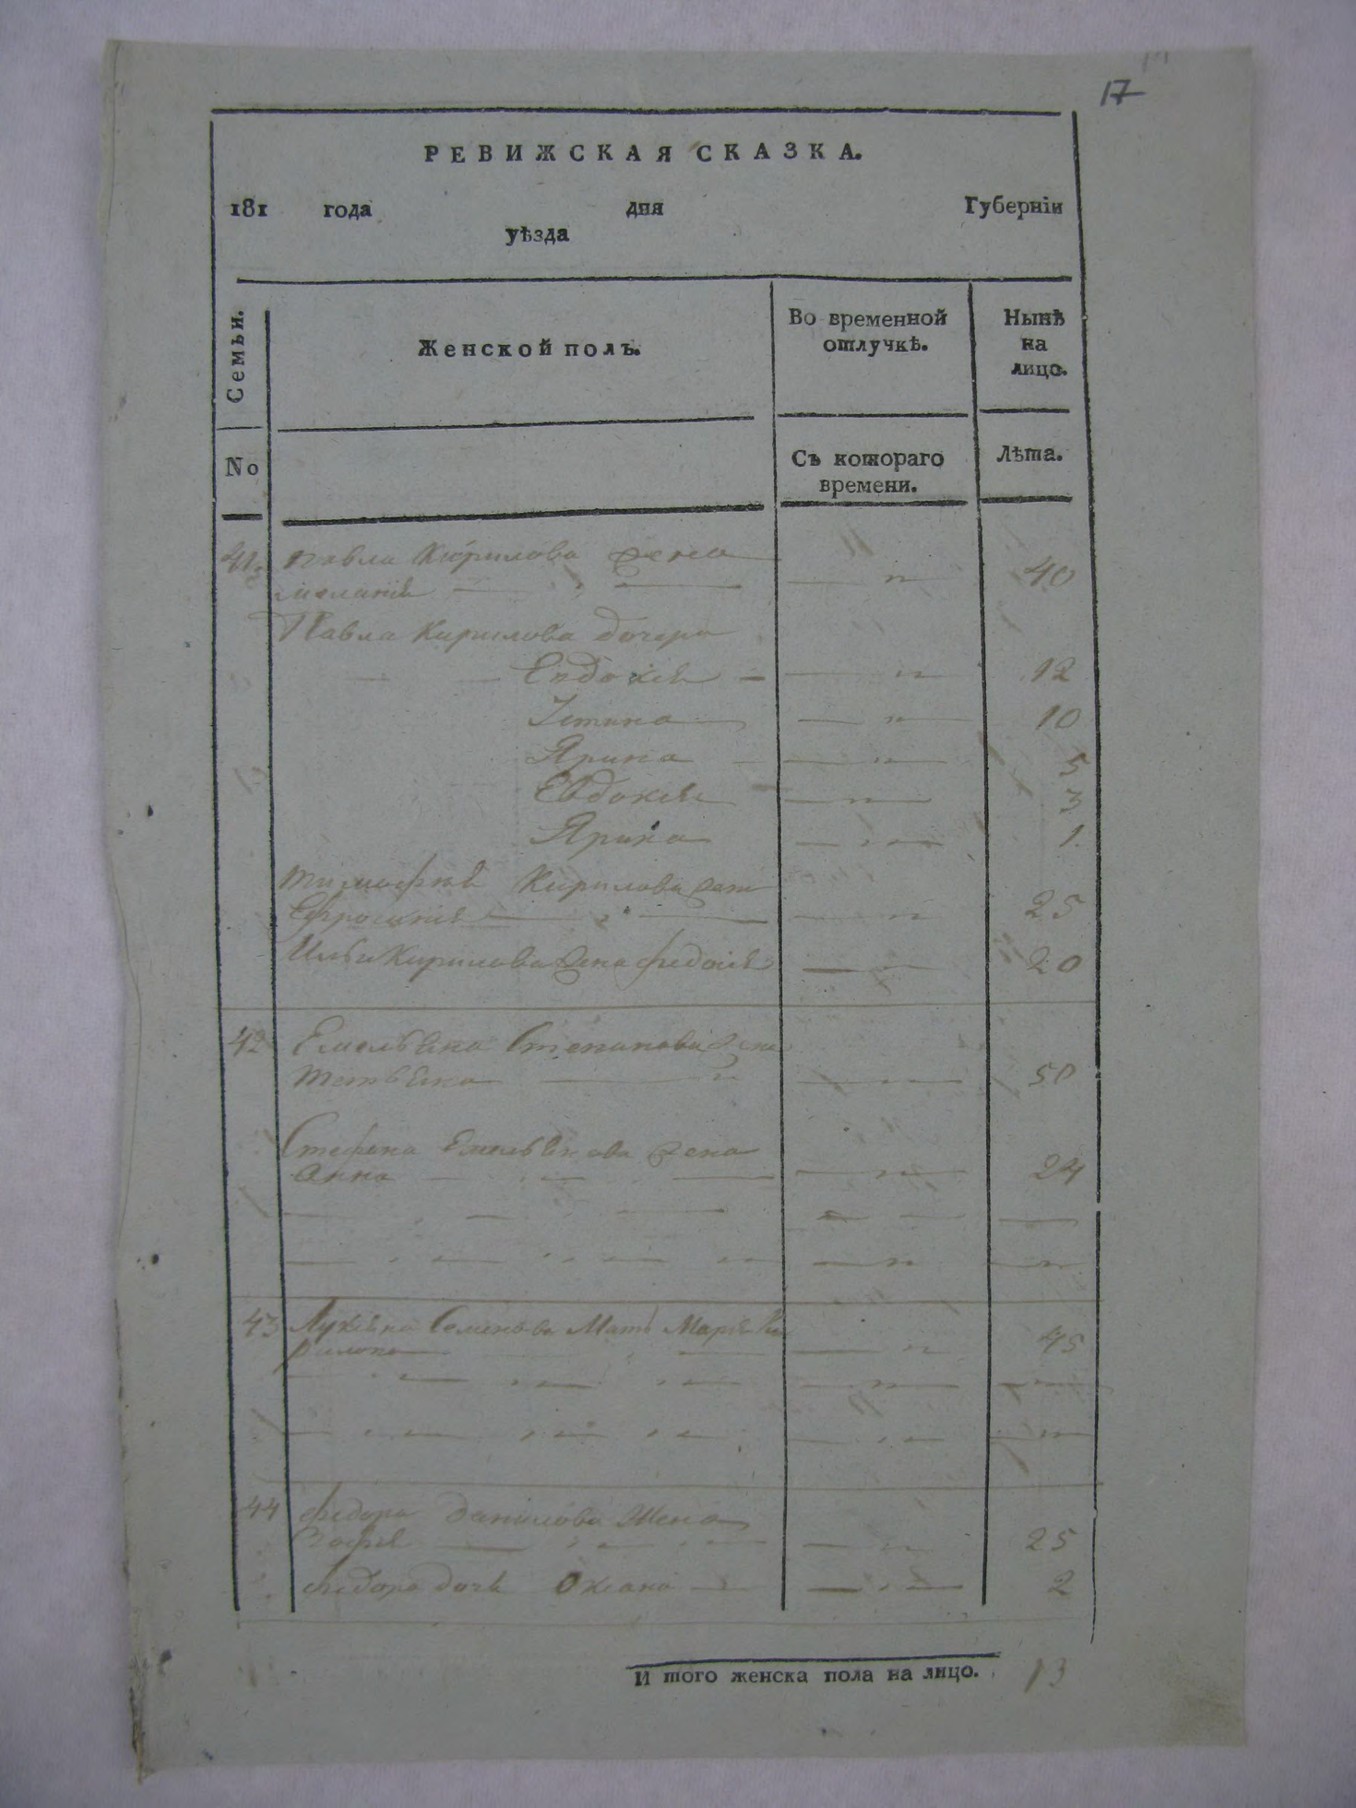 17
РЕВИЖСКАЯ СКАЗКА.
181 года дня Губерніи
уѣзда
Семьи. Женской полъ. Во временной отлучкѣ. Нынѣ на лицо.
No Съ котораго времени. Лѣта.
41 Павла Кирилова жена
меланія 40
Павла Кирилова дочери
Евдокія 12
Устина 10
Ярина 5
Евдокія 3
Ярина 1
тимофѣя Кирилова жена
Ефросинія 25
Ильи Кирилова жена федосія 20
42 Емельяна Степанова жена
татьяна 50
Стефана Емельянова жена
Анна 24
43 Лукьяна Семенова Мать Марія Ки
рилова 45
44 федора данилова Жена
Зофія 25
федора дочь Оксана 2
И того женска пола на лицо. 13